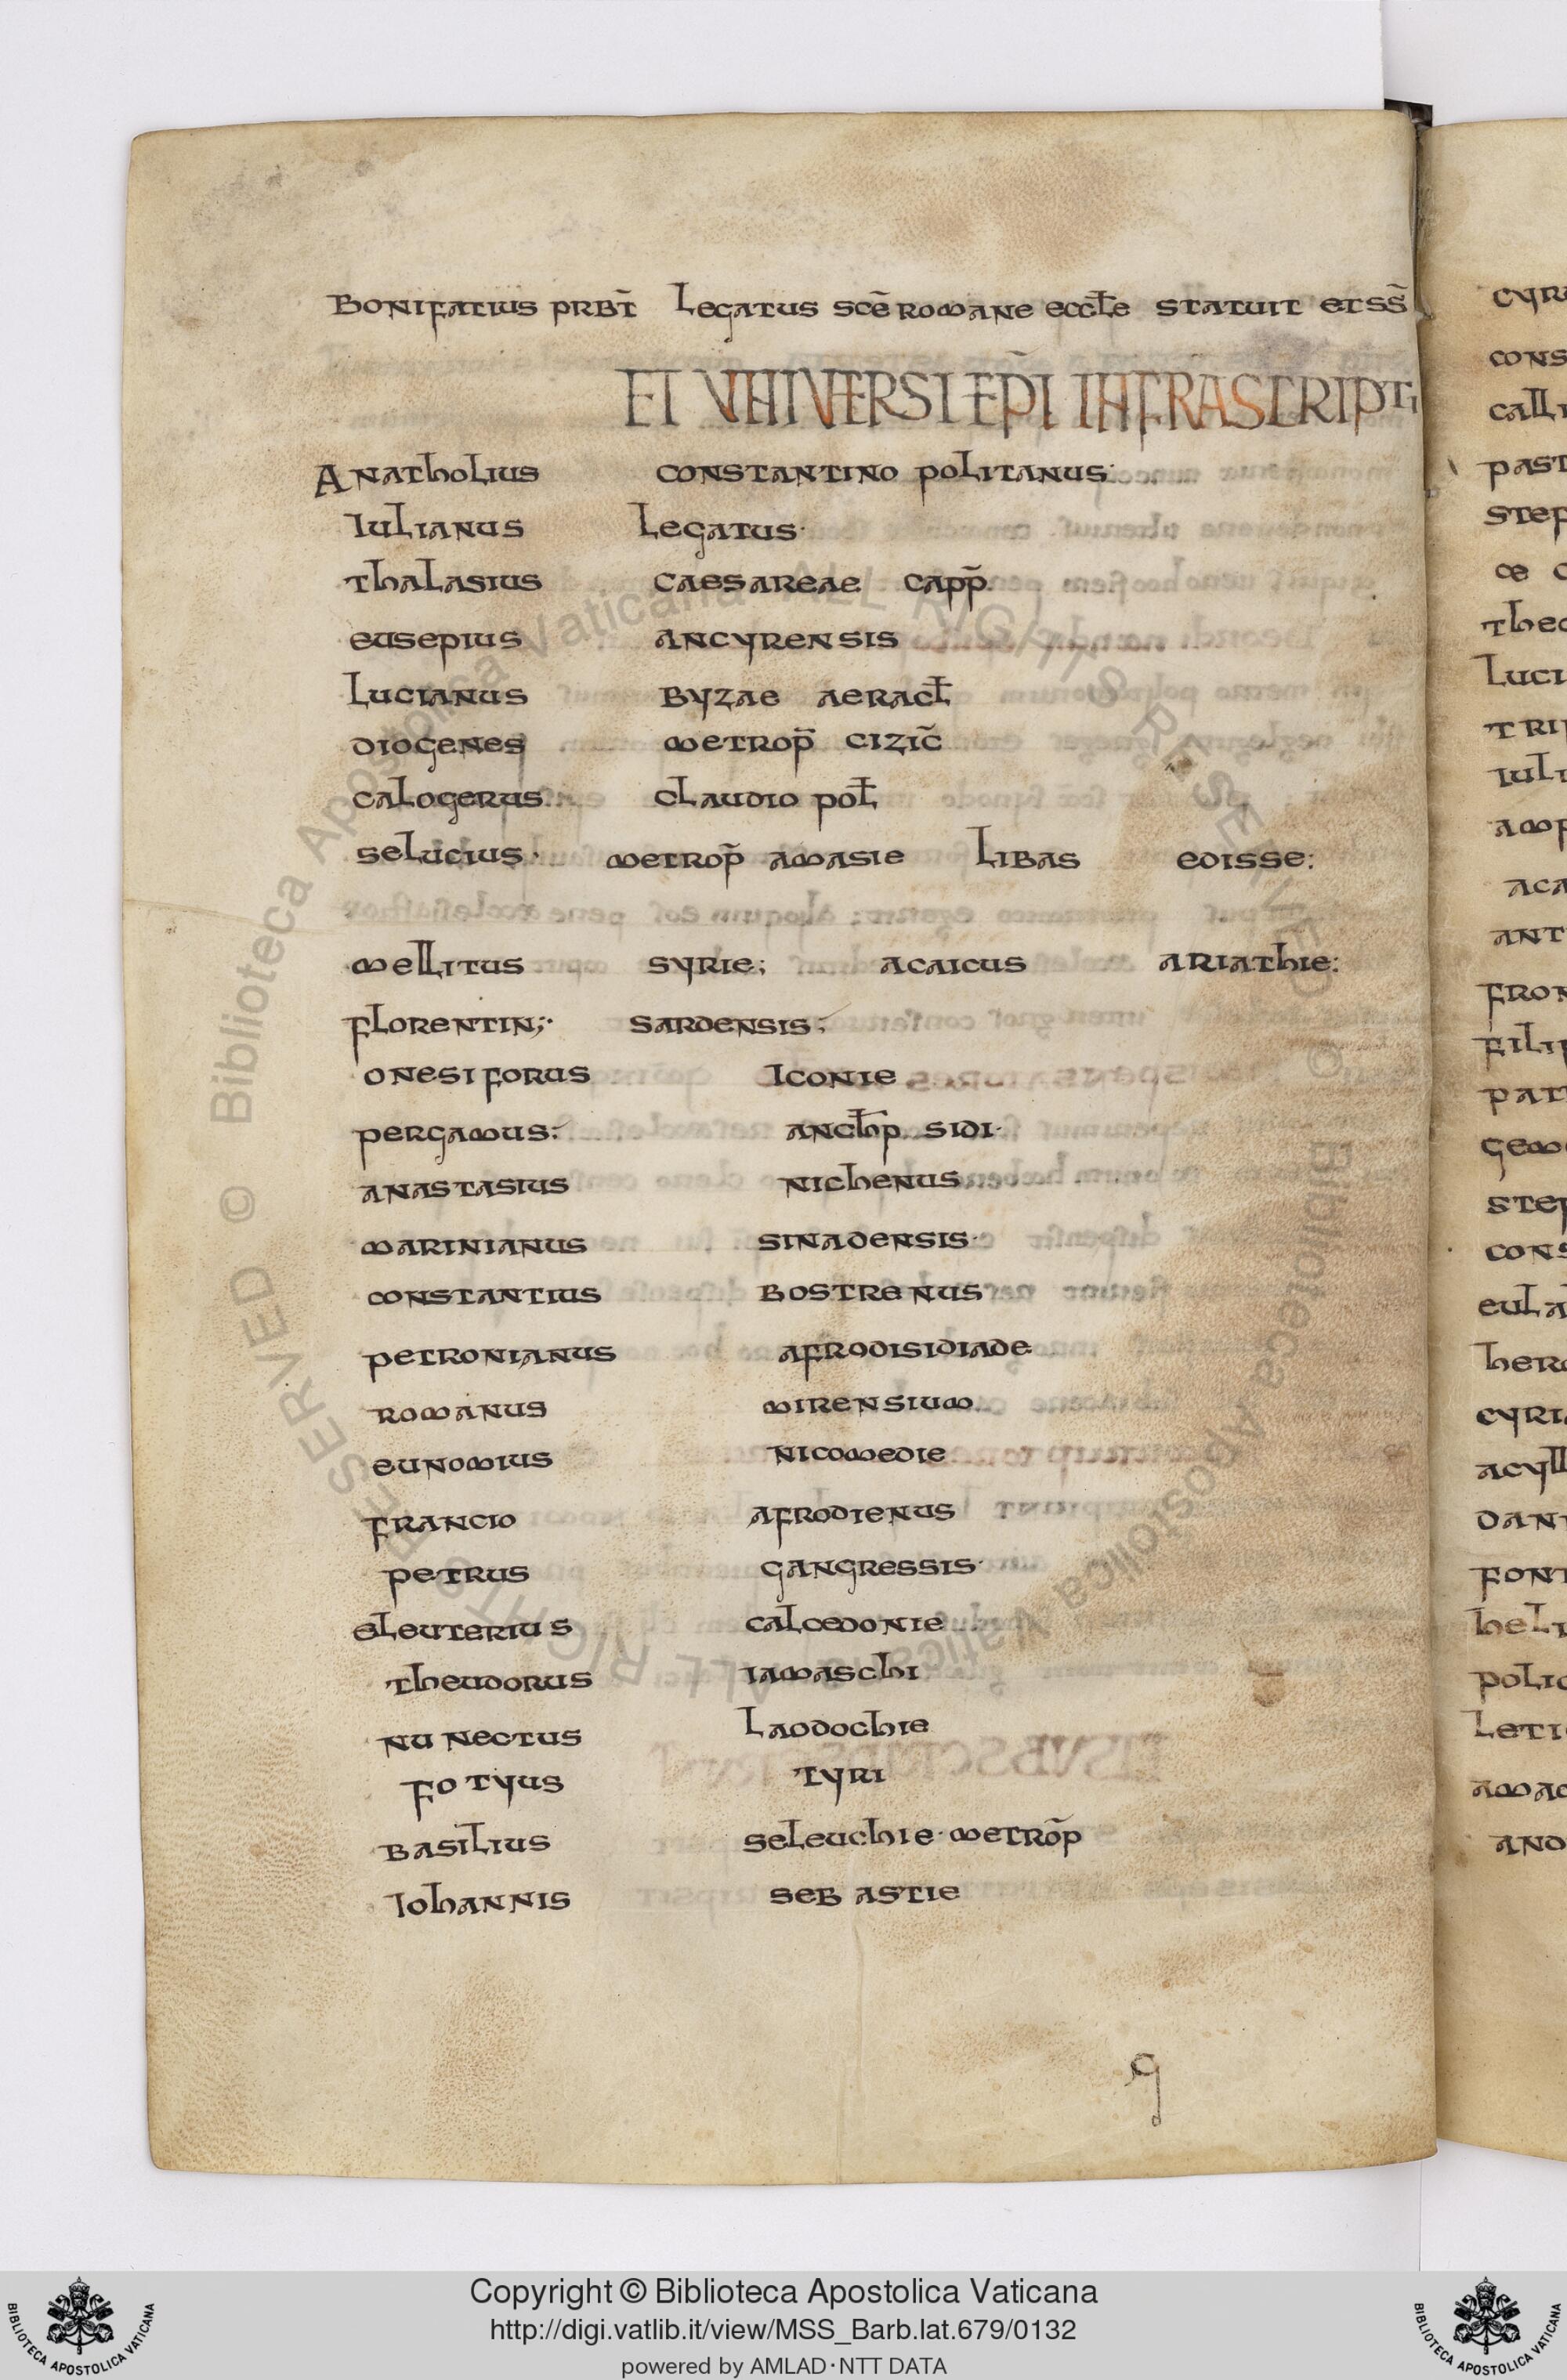 BONIFATIUS PRBT̄ LEGATUS SCĒ ROMANE ECCƚE STATUIT ET SS̄
ET UNIVERSI EP̄I INFRASCRIPTI
ANATHOLIUS CONSTANTINO POLITANUS·
IULIANUS LEGATUS·
THALASIUS CAESAREAE CAPP̄
EUSEPIUS ANCYRENSIS
LUCIANUS BYZAE AERACƚ
DIOGENES METROP̄ CIZIC̄
CALOGERUS CLAUDIO POƚ
SELUCIUS· METROP̄ AMASIE LIBAS EDISSE:
MELLITUS SYRIE; ACAICUS ARIATHIE:
FLORENTIN;· SARDENSIS;
ONESIFORUS ICONIE
PERGAMUS; ANCƕP SIDI·
ANASTASIUS NICHENUS
MARINIANUS SINADENSIS·
CONSTANTIUS BOSTRENUS
PETRONIANUS AFRODISIDIADE
ROMANUS MIRENSIUM
EUNOMIUS NICOMEDIE
FRANCIO AFRODIENUS
PETRUS GANGRESSIS·
ELEUTERIUS CALCEDONIE
THEUDORUS IAMASCHI
NU NECTUS LAODOCHIE
FOTYUS TYRI
BASILIUS SELEUCHIE·METROP̄
IOHANNIS SEB ASTIE
q
CYR
CONS
CALLI
PAST
STEF
CE
THEO
LUCI
TRI
IULI
AMP
ACA
ANT
FRON
FILIP
PAT
GEM
STEP
CONS
EULA
HER
CYRI
ACYLL
DANI
FONT
HELI
POLIC
LETI
AMAC
AND
Biblioteca Apostolica Vaticana ALL RIGHTS RESERVED © Biblioteca Apostolica Vaticana ALL RIGHTS RESERVED ©
Copyright © Biblioteca Apostolica Vaticana
http://digi.vatlib.it/view/MSS_Barb.lat.679/0132
powered by AMLAD·NTT DATA
BIBLIOTECA APOSTOLICA VATICANA
BIBLIOTECA APOSTOLICA VATICANA